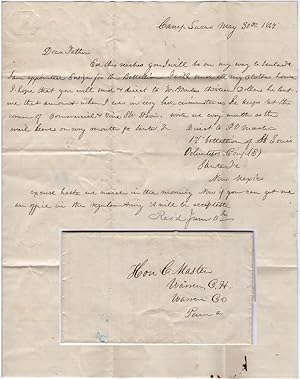 Camp Sucre May 30th 1847
Dear Father
Ere this reaches you I will be on my way to Santa Fe
I am appointed Ensign for the Battal
I hope that you will send direct to Mr thirteen Dollars he lent
me that amount when I was in very bad circumstances he keeps at the
corner of Commercial & Vine St. and write every month as the
mail leaves every month for Santa F Direct to P O Master
1st battalion of St Louis
Volunteers Comp (B)
Santa Fe
New Mexico
excuse haste we march in the morning Now if you can get me
an office in the regular Army it will be acceptable
Recd June 11th
Hon G Master
Warren C.H.
Warren Co
Penn a